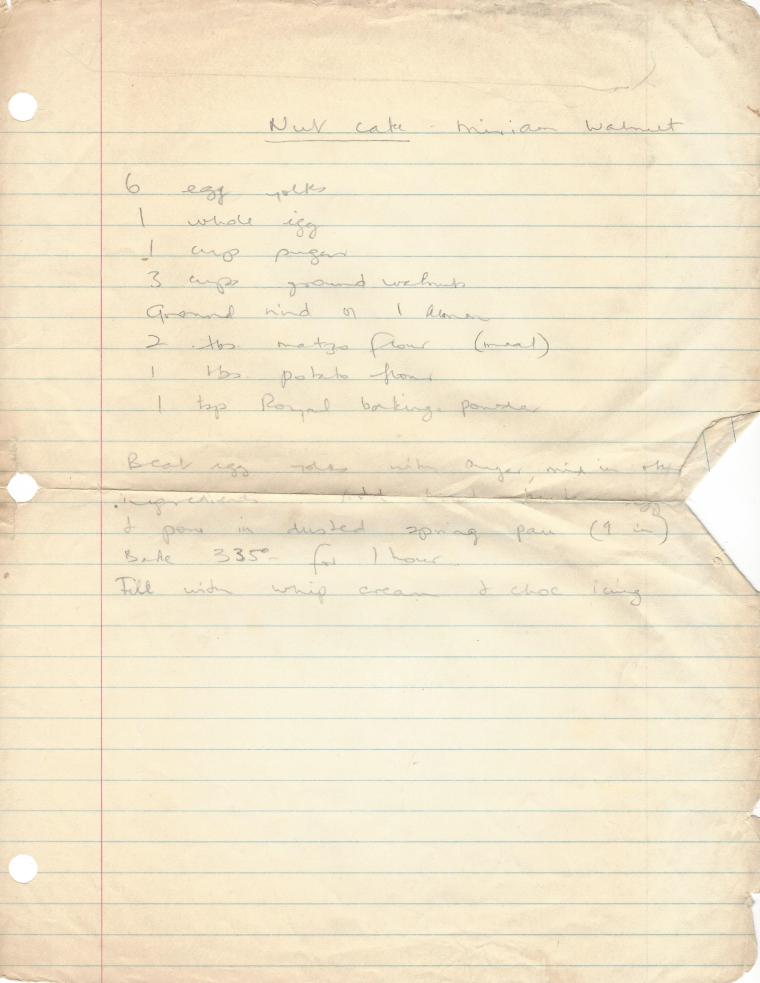 Nut cake - Miriam Walnut
6 egg yolks
1 whole egg
1 cup sugar
3 cups ground walnuts
Ground rind of 1 lemon
2 tbs. matzo flour (meal)
1 tbs. potato flour
1 tsp Royal baking powder
Beat egg yolks with sugar, mix in other
ingredients. Add
& pour in dusted spring pan (9 in)
Bake 335° for 1 hour.
Fill with whip cream & choc icing